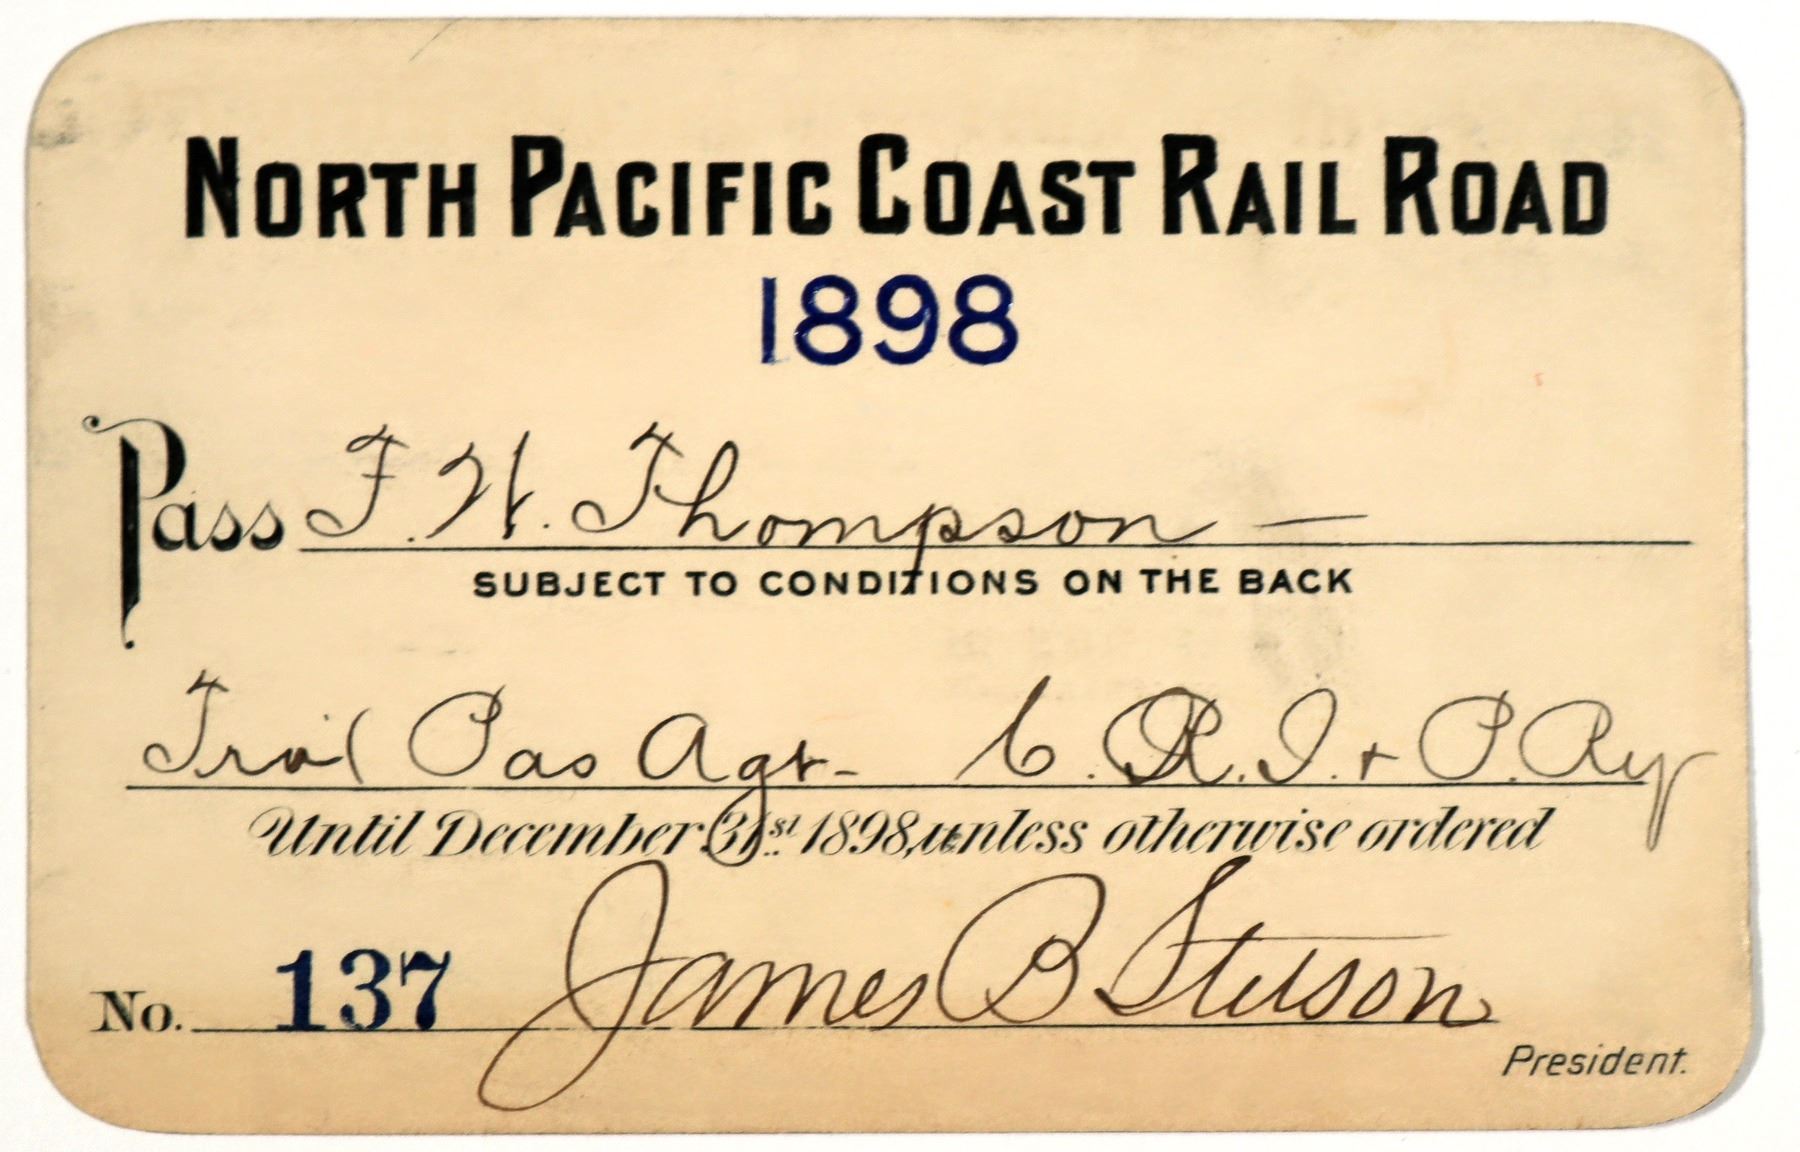 NORTH PACIFIC COAST RAIL ROAD
1898
Pass F. W. Thompson —
SUBJECT TO CONDITIONS ON THE BACK
Pas Agt- C. R. I. + P. Ry
Until December 31st 1898, unless otherwise ordered
No. 137 James B Stetson
President.